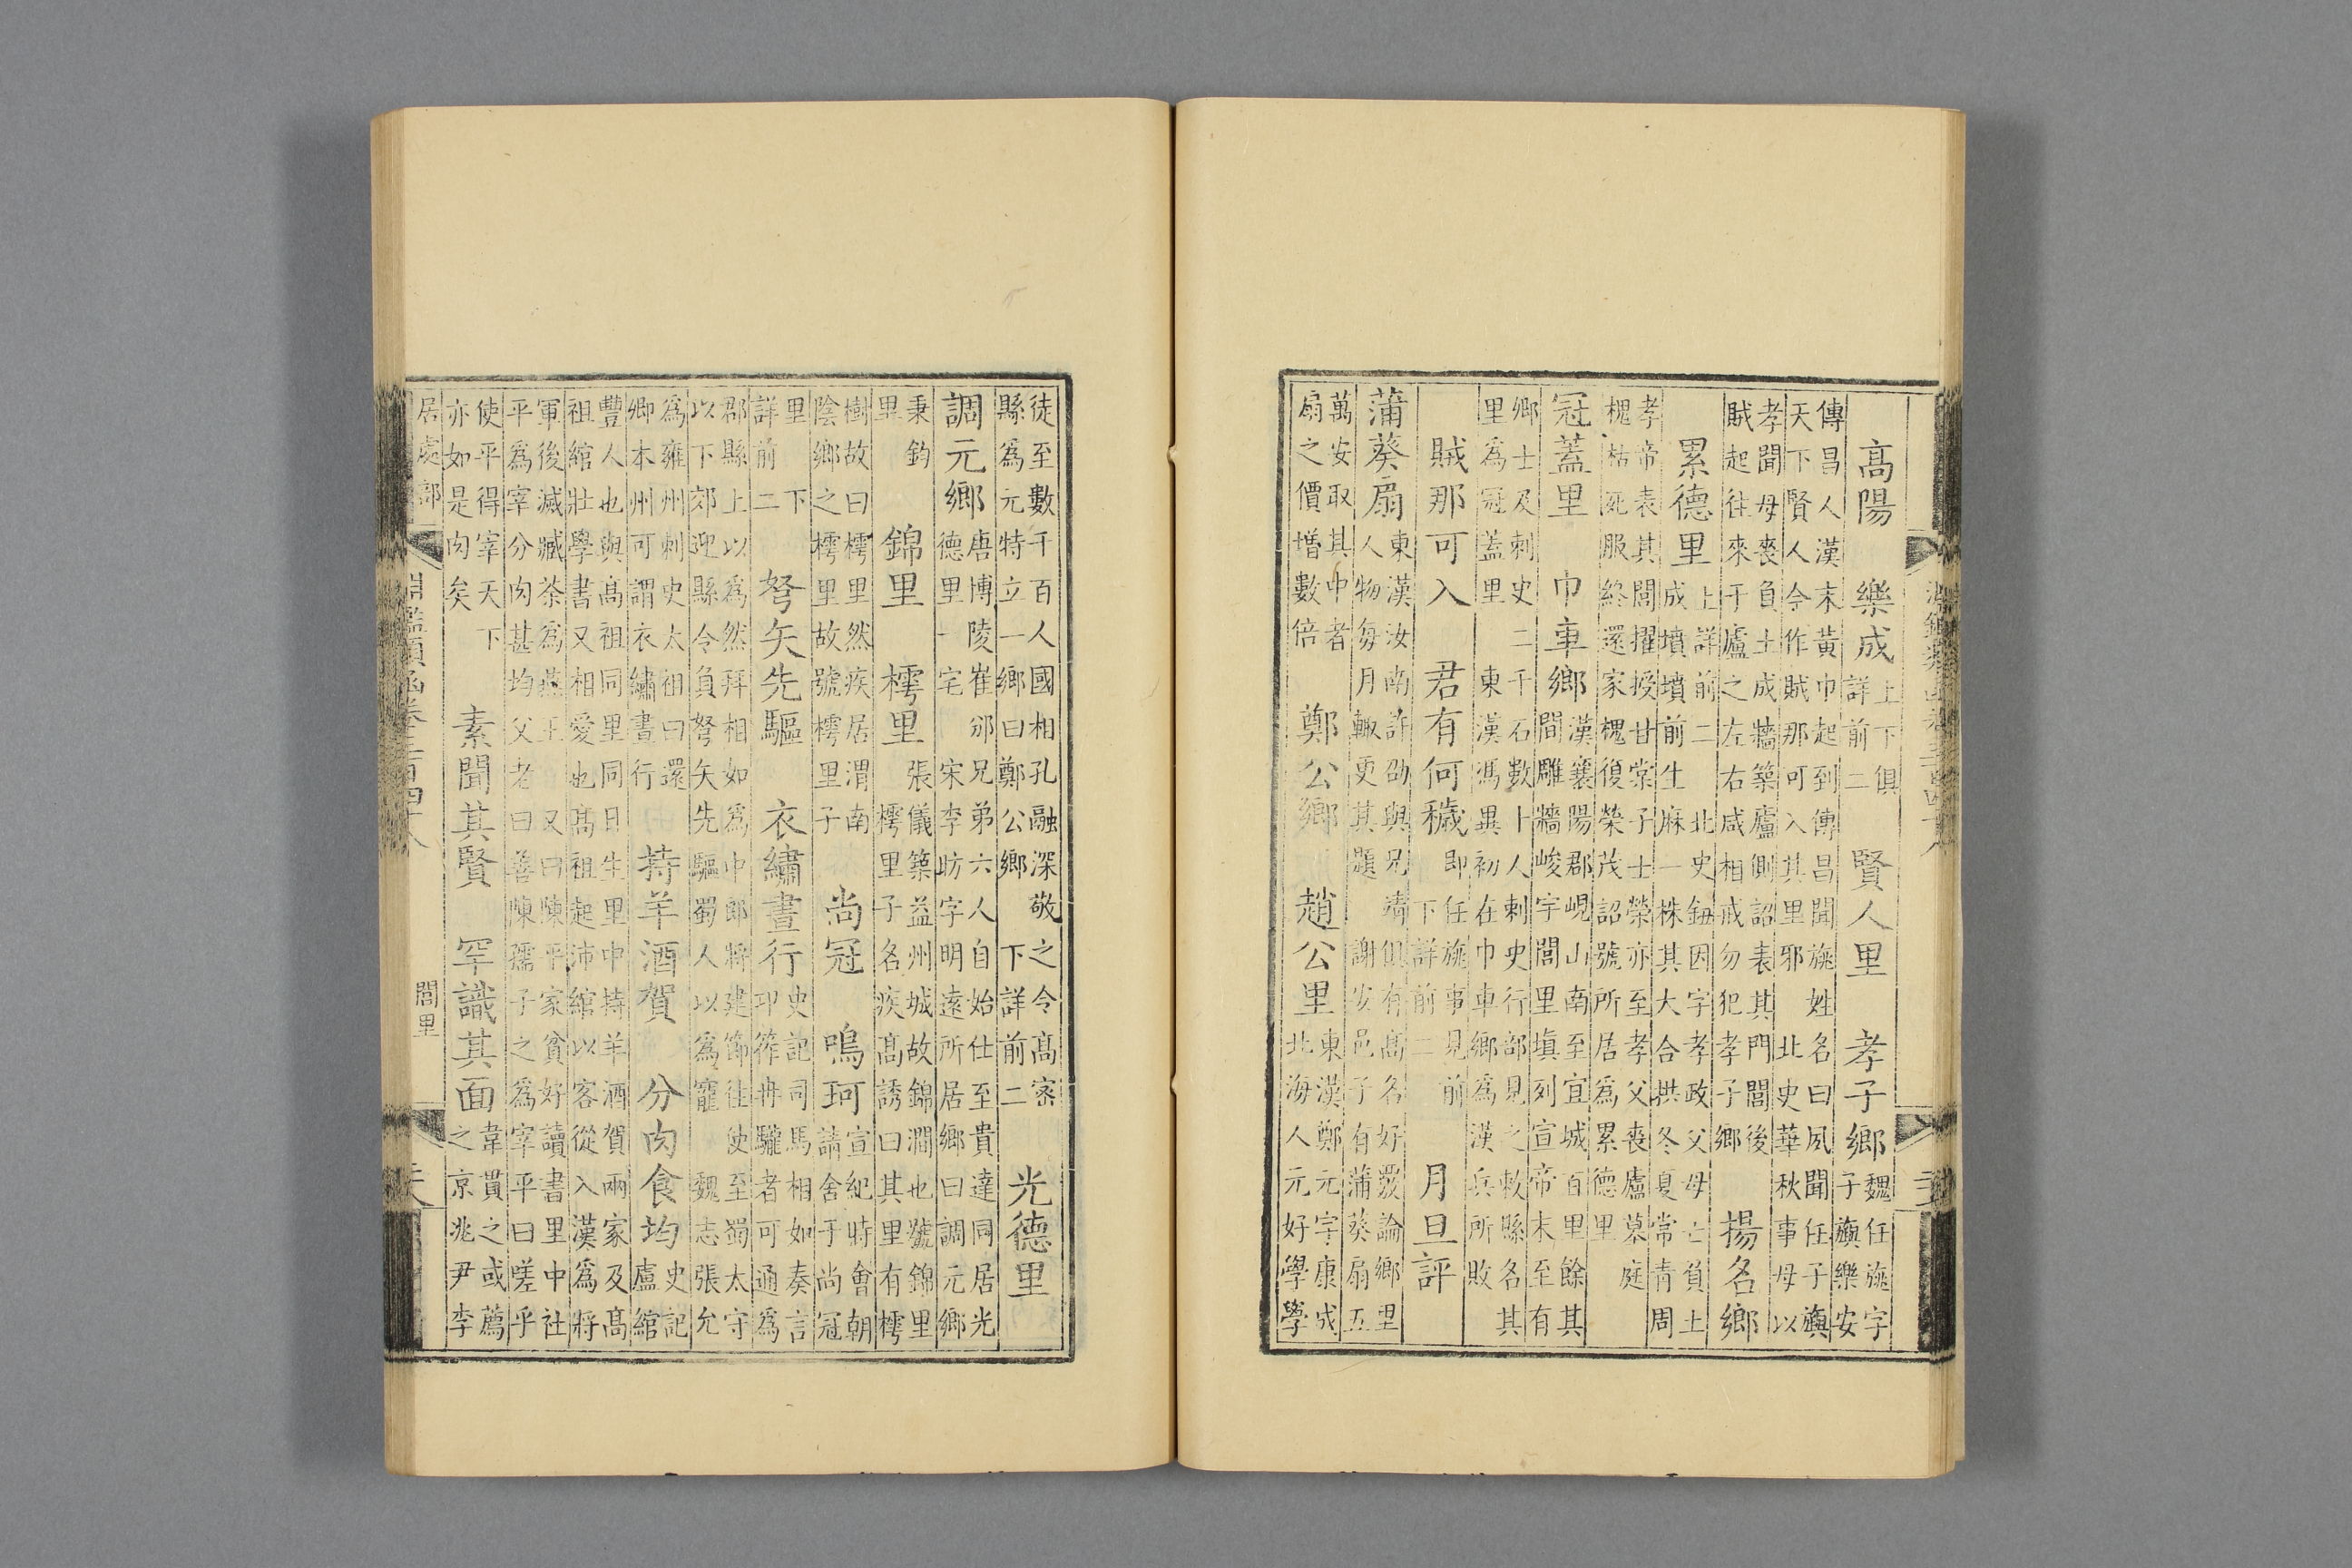 高陽　樂成
上下俱
詳前二
賢人里　孝子鄉
魏任旐字
子旟樂安
傳昌人漢末黃巾起到傳昌聞旐姓名曰夙聞任子旟
天下賢人今作賊那可入其里邪　北史華秋事母以
孝聞母喪負土成牆築廬側詔表其門閭後
賊起往來于廬之左右咸相戒勿犯孝子鄉
揚名鄉
累德里
上詳前二　北史鈕因字孝政父母亡負土
成墳墳前生麻一株其大合拱冬夏常青周
孝帝表其閭擢授甘棠子士榮亦至孝父喪廬墓庭
槐枯死服終還家槐復榮茂詔號所居為累德里
冠蓋里　巾車鄉
漢襄陽郡峴山南至宜城百里餘其
間雕牆峻宇閭里填列宣帝末至有
鄉士及刺史二千石數十人刺史行部見之敕縣名其
里為冠蓋里　東漢馮異初在巾車鄉為漢兵所敗
賊那可入　君有何穢
即任旐事見前
下詳前二
月旦評
蒲葵扇
東漢汝南許劭與兄靖俱有高名好覈論鄉里
人物每月輒更其題　謝安邑子有蒲葵扇五
萬安取其中者
扇之價增數倍
鄭公鄉　趙公里
東漢鄭元字康成
北海人元好學學
徒至數千百人國相孔融深敬之令高密
縣為元特立一鄉曰鄭公鄉　下詳前二
光德里
調元鄉
唐博陵崔邠兄弟六人自始仕至貴達同居光
德里一宅　宋李昉字明遠所居鄉曰調元鄉
秉鈞
里
錦里　樗里
張儀築益州城故錦澗也號錦里
樗里子名疾高誘曰其里有樗
樹故曰樗里然疾居渭南
陰鄉之樗里故號樗里子
尚冠　鳴珂
宣紀時會朝
請舍于尚冠
里　下
詳前二
弩矢先驅　衣繡晝行
史記司馬相如奏言
卭筰冉駹者可通為
郡縣上以為然拜相如為中郎將建節往使至蜀太守
以下郊迎縣令負弩矢先驅蜀人以為寵　魏志張允
為雍州刺史太祖曰還
卿本州可謂衣繡晝行
持羊酒賀　分肉食均
史記
盧綰
豐人也與高祖同里同日生里中持羊酒賀兩家及高
祖綰壯學書又相愛也高祖起沛綰以客從入漢為將
軍後滅臧荼為燕王　又曰陳平家貧好讀書里中社
平為宰分肉甚均父老曰善陳孺子之為宰平曰嗟乎
使平得宰天下
亦如是肉矣
素聞其賢　罕識其面
韋貫之或薦
之京兆尹李
居處部
淵鑑類函卷三百四十八
閭里